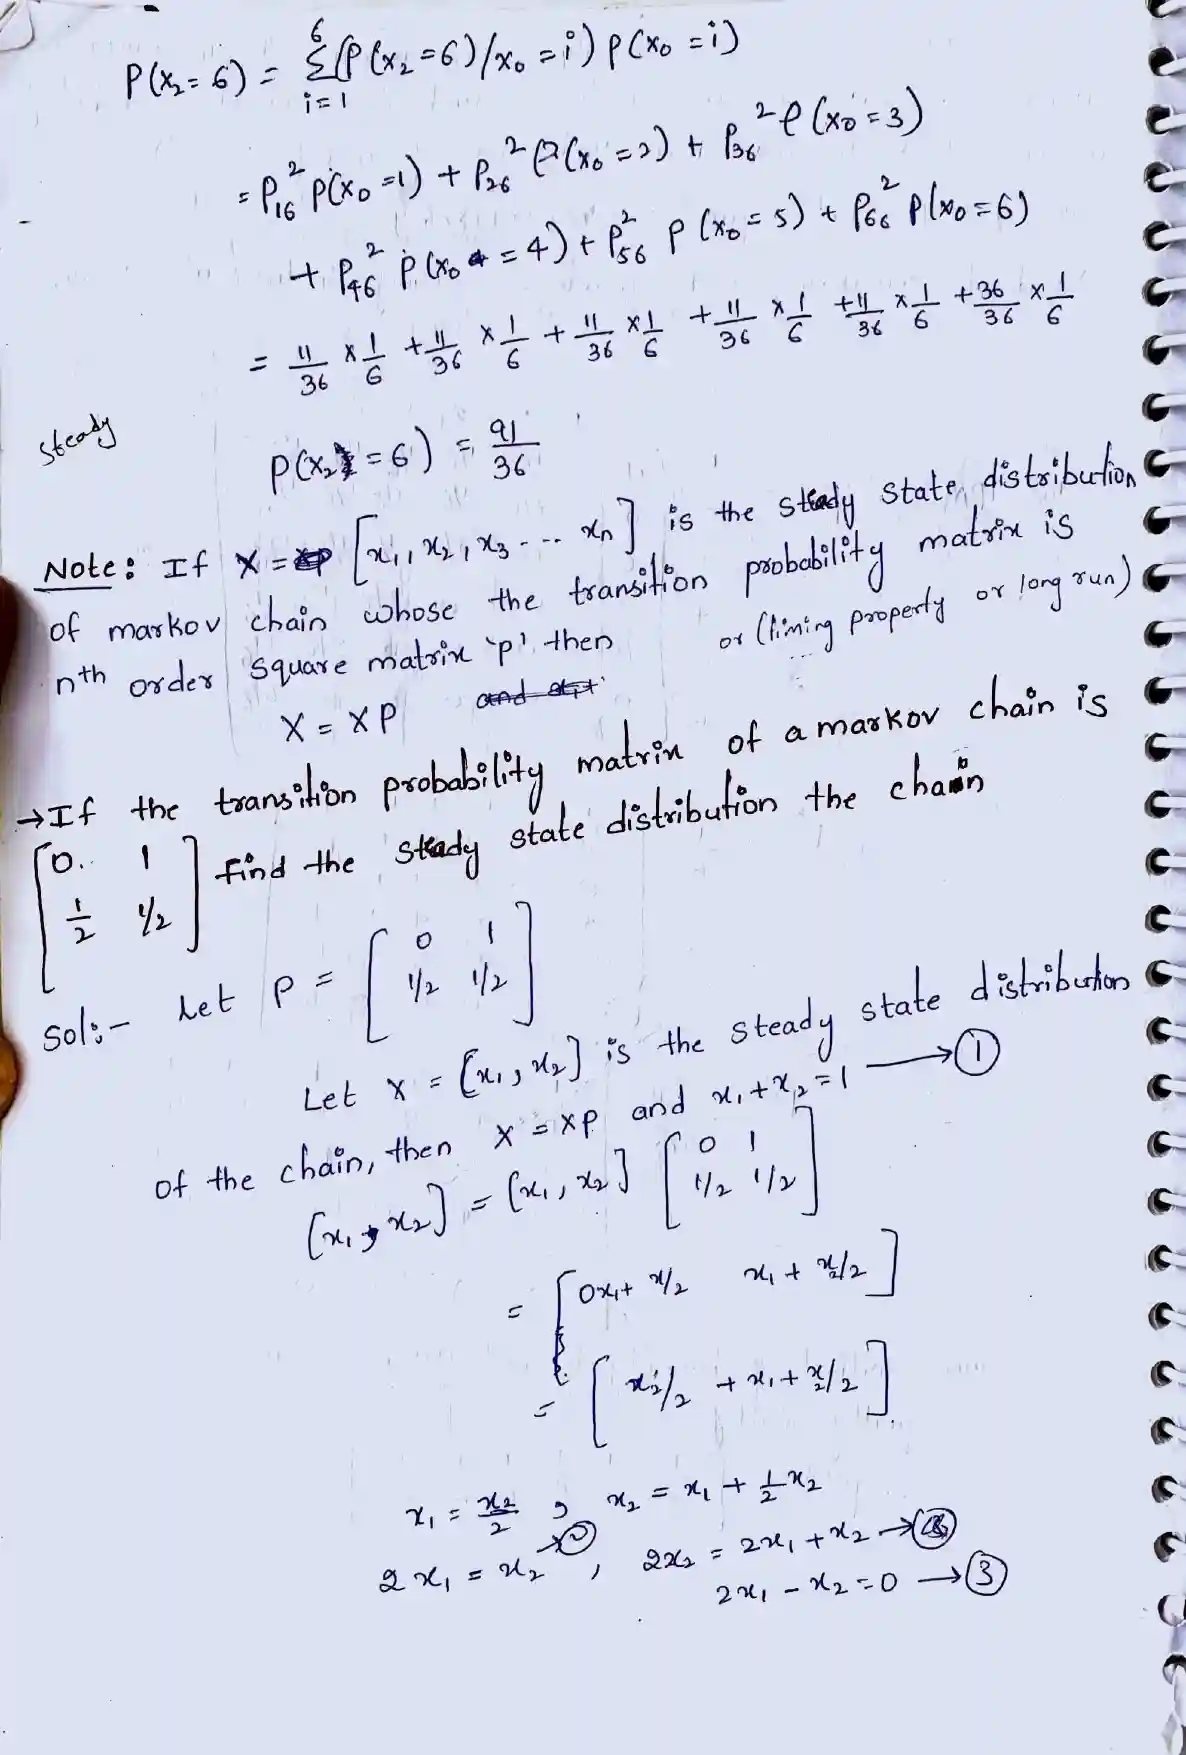 P(x₂=6) = Σ_{i=1}^{6} (P(x₂=6)/x₀=i) P(x₀=i)
= P₁₆² P(x₀=1) + P₂₆² P(x₀=2) + P₃₆² P(x₀=3)
+ P₄₆² P(x₀=4) + P₅₆² P(x₀=5) + P₆₆² P(x₀=6)
= 11/36 × 1/6 + 11/36 × 1/6 + 11/36 × 1/6 + 11/36 × 1/6 + 11/36 × 1/6 + 36/36 × 1/6
Steady
P(x₂=6) = 91/36
Note: If X = [x₁, x₂, x₃ --- xₙ] is the steady state distribution
of markov chain whose the transition probability matrix is
nth order square matrix 'p' then or (liming property or long run)
X = XP
→ If the transition probability matrix of a markov chain is
[0 1
1/2 1/2] find the steady state distribution the chain
Sol:- Let P = [0 1
1/2 1/2]
Let X = [x₁, x₂] is the steady state distribution
of the chain, then X = XP and x₁+x₂=1 → ①
[x₁, x₂] = [x₁, x₂] [0 1
1/2 1/2]
= [0x₁+ x/2 x₁+ x₂/2]
= [x₂/2 + x₁+ x₂/2]
x₁ = x₂/2 , x₂ = x₁ + 1/2 x₂
2x₁ = x₂ → ② , 2x₂ = 2x₁ + x₂ →
2x₁ - x₂ = 0 → ③